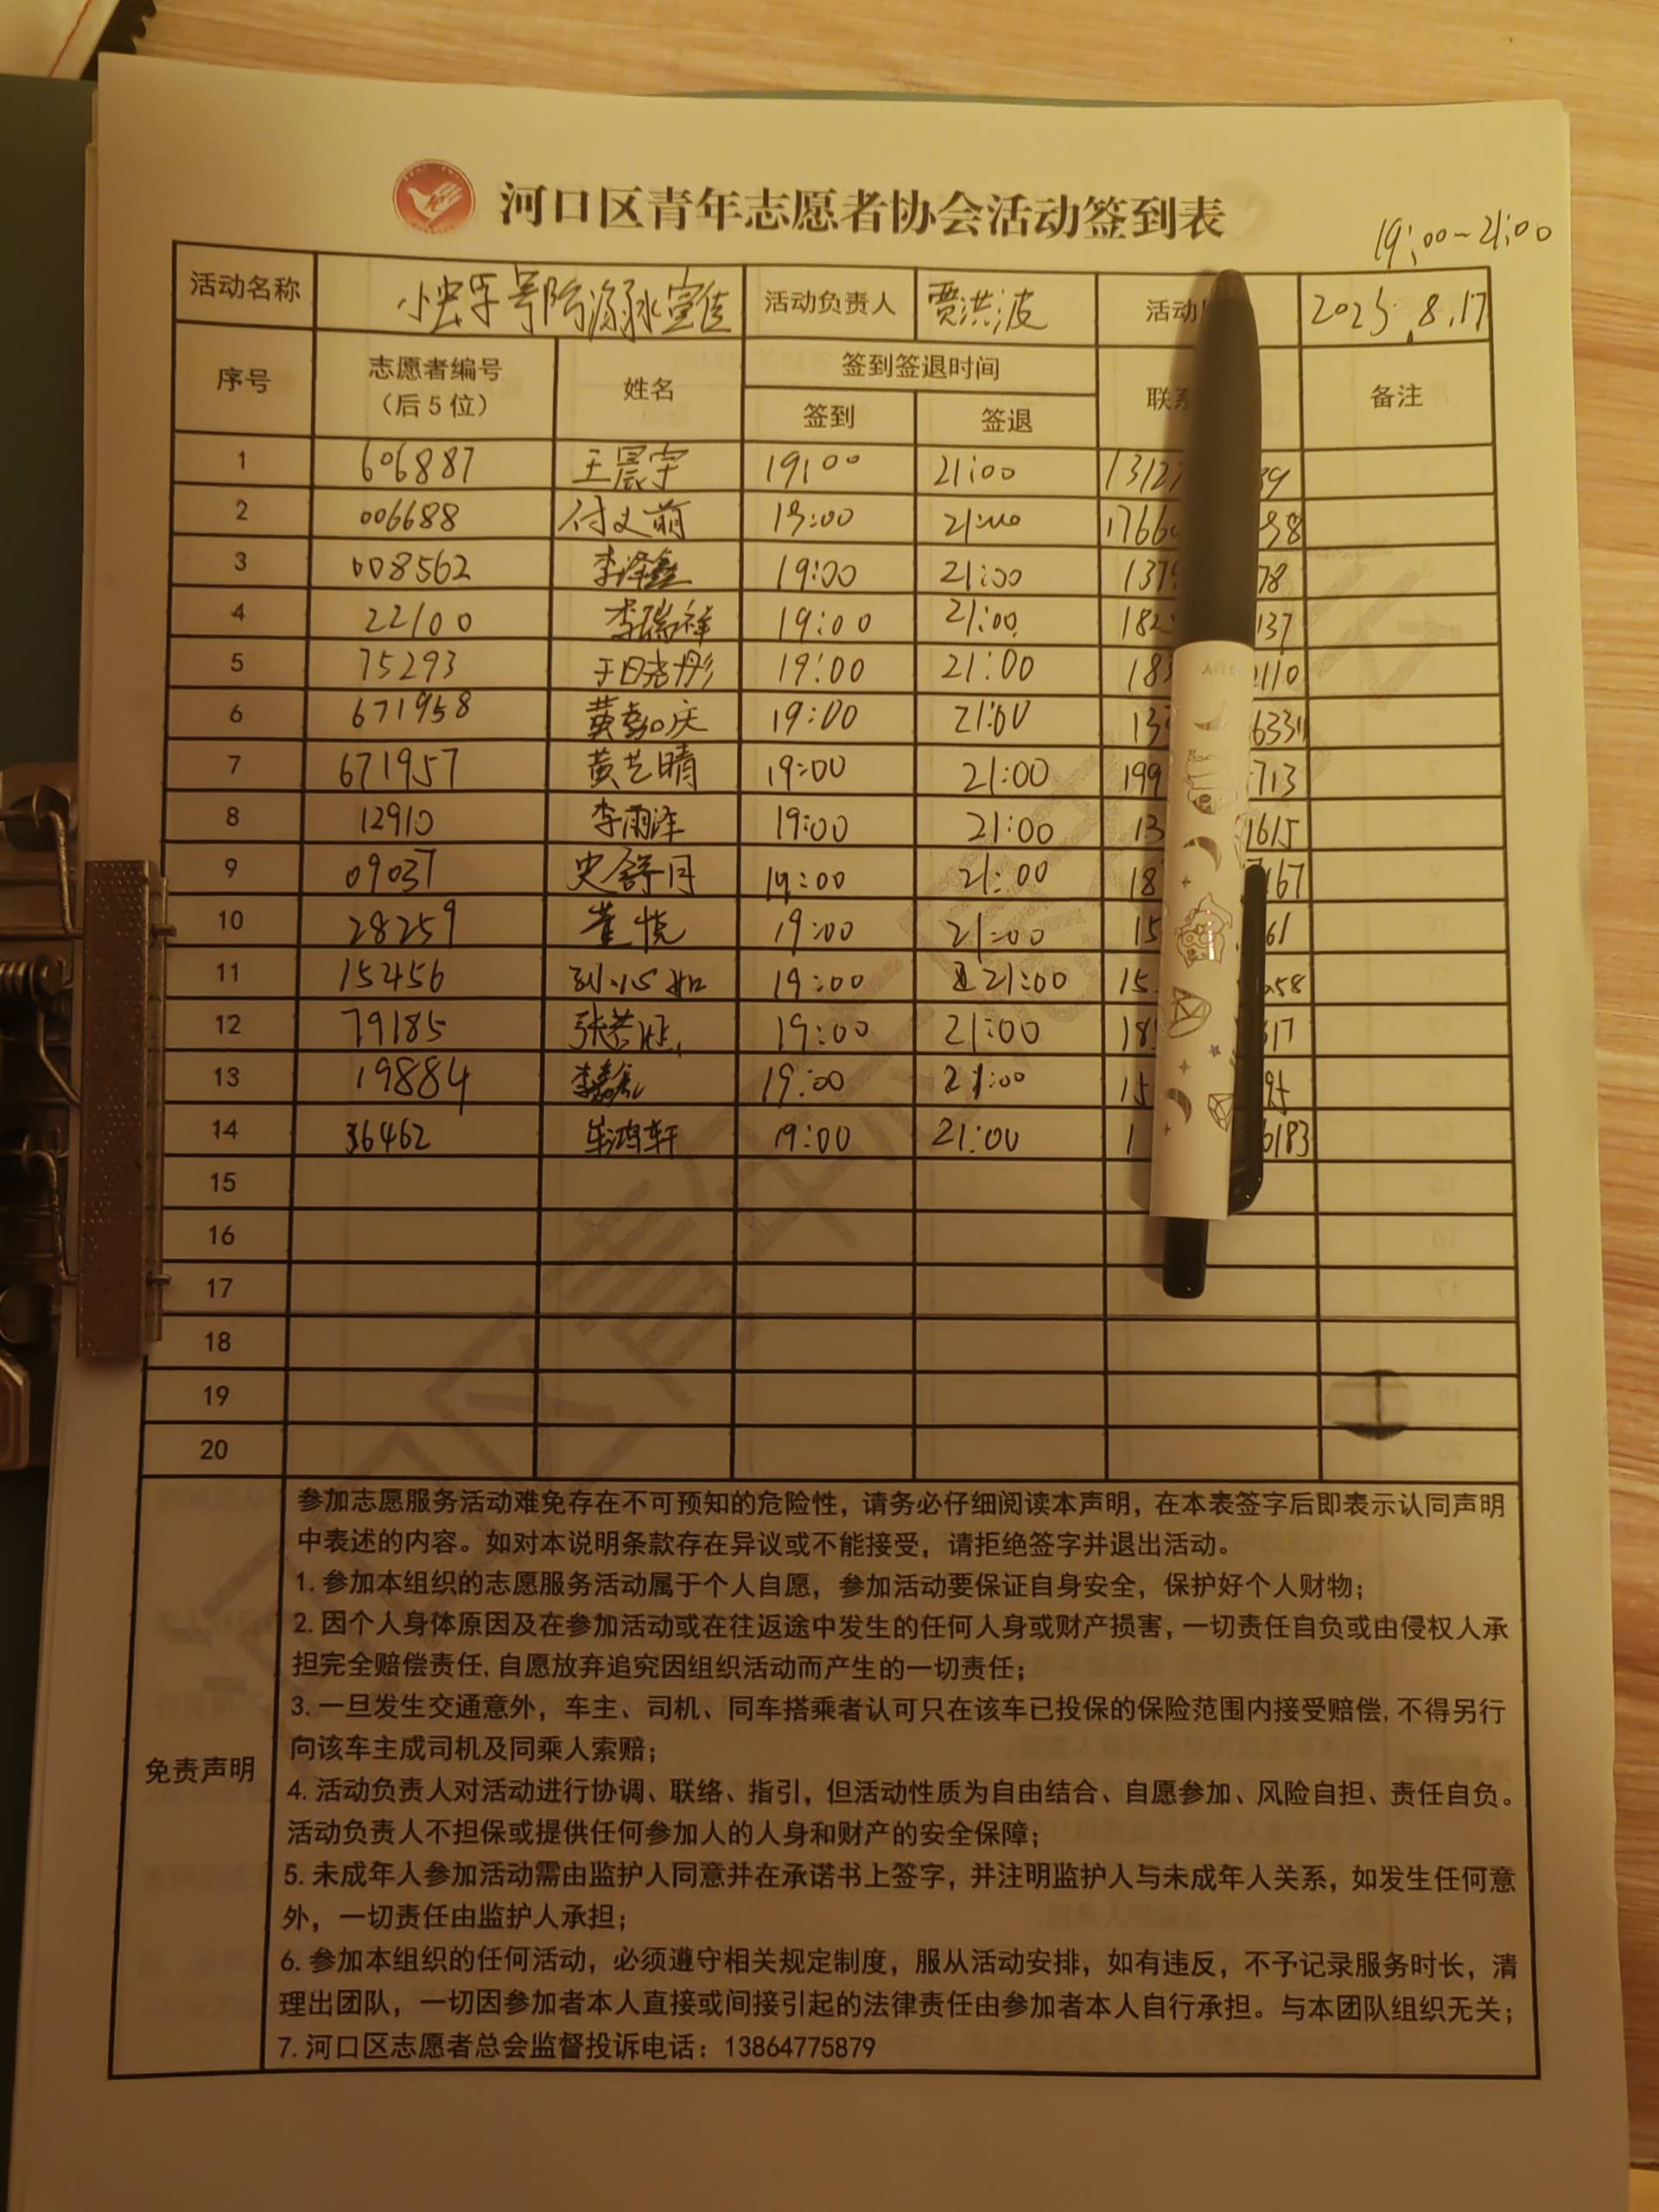 河口区青年志愿者协会活动签到表
19:00~21:00
活动名称 防溺水宣传 活动负责人 贾洪波 活动 2025.8.17
序号 志愿者编号（后5位） 姓名 签到签退时间 签到 签退 联系 备注
1 606887 王晨宇 19:00 21:00 1312 39
2 006688 付文萌 19:00 21:00 1766 38
3 008562 李泽鑫 19:00 21:00 137 78
4 22100 李瑞祥 19:00 21:00 182 137
5 75293 于晓彤 19:00 21:00 183 2110
6 671958 黄嘉庆 19:00 21:00 13 6331
7 671957 黄艺晴 19:00 21:00 199 713
8 12910 李雨泽 19:00 21:00 13 1615
9 09037 史舒月 19:00 21:00 18 167
10 28259 董悦 19:00 21:00 15 61
11 15456 孙心如 19:00 21:00 15 58
12 79185 张若 19:00 21:00 18 617
13 19884 李 19:00 21:00 15 95
14 36462 鸿轩 19:00 21:00 1 6183
15
16
17
18
19
20
免责声明
参加志愿服务活动难免存在不可预知的危险性，请务必仔细阅读本声明，在本表签字后即表示认同声明
中表述的内容。如对本说明条款存在异议或不能接受，请拒绝签字并退出活动。
1. 参加本组织的志愿服务活动属于个人自愿，参加活动要保证自身安全，保护好个人财物；
2. 因个人身体原因及在参加活动或在往返途中发生的任何人身或财产损害，一切责任自负或由侵权人承
担完全赔偿责任，自愿放弃追究因组织活动而产生的一切责任；
3. 一旦发生交通意外，车主、司机、同车搭乘者认可只在该车已投保的保险范围内接受赔偿，不得另行
向该车主成司机及同乘人索赔；
4. 活动负责人对活动进行协调、联络、指引，但活动性质为自由结合、自愿参加、风险自担、责任自负。
活动负责人不担保或提供任何参加人的人身和财产的安全保障；
5. 未成年人参加活动需由监护人同意并在承诺书上签字，并注明监护人与未成年人关系，如发生任何意
外，一切责任由监护人承担；
6. 参加本组织的任何活动，必须遵守相关规定制度，服从活动安排，如有违反，不予记录服务时长，清
理出团队，一切因参加者本人直接或间接引起的法律责任由参加者本人自行承担。与本团队组织无关；
7. 河口区志愿者总会监督投诉电话：13864775879